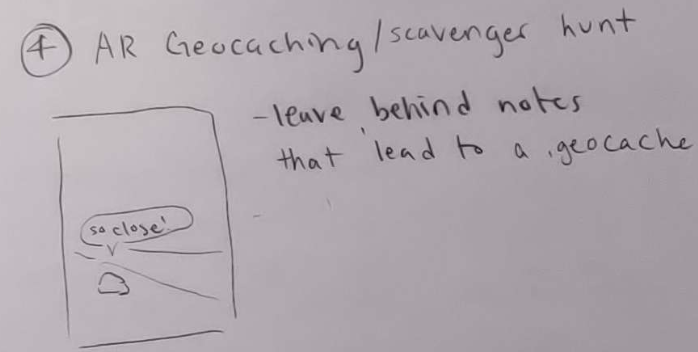 4 AR Geocaching/scavenger hunt
-leave behind notes
that lead to a geocache
so close!